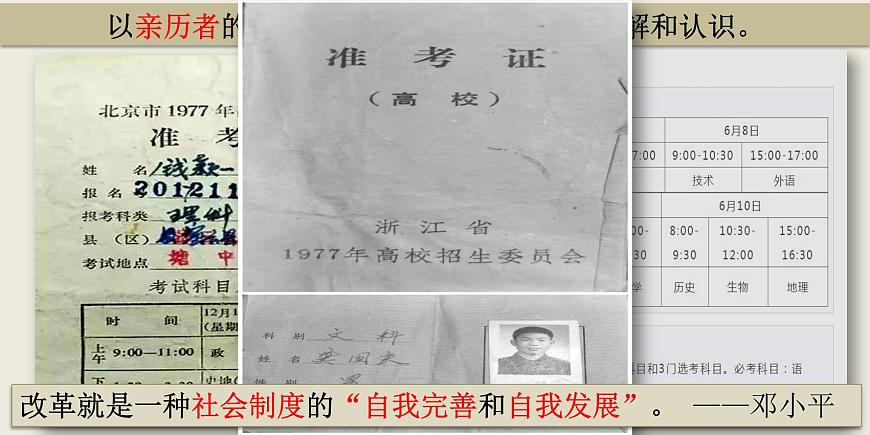 以亲历者的
解和认识。
北京市1977年
准 考
姓 名 钱颖一
报 名 号 201211
报考科类 理科
县 (区)
考试地点 塘 中
考试科目
时 间
12月1
(星期
上午 9:00—11:00 政
准 考 证
(高 校)
浙 江 省
1977年高校招生委员会
科 别 文 科
姓 名 龚国庆
性 别 男
6月8日
7:00 9:00-10:30 15:00-17:00
技术 外语
6月10日
8:00-9:30 10:30-12:00 15:00-16:30
学 历史 生物 地理
科目和3门选考科目。必考科目:语
改革就是一种社会制度的“自我完善和自我发展”。 ——邓小平